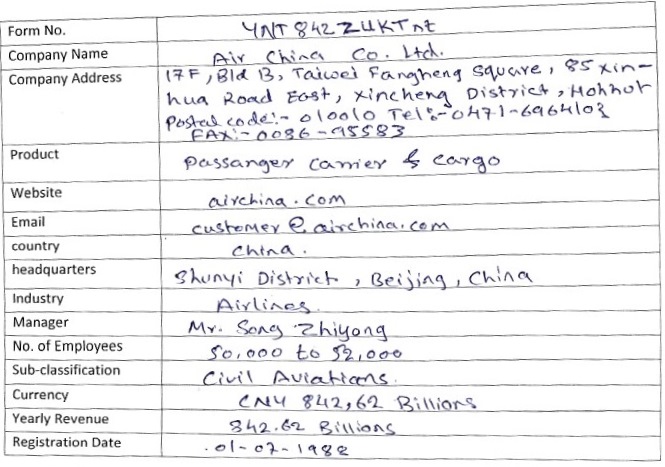 Form No. YNT842ZUKTnt
Company Name Air China Co. Ltd.
Company Address 17F, Bld B, Taiwei Fangheng Square, 85 Xin-
hua Road East, Xincheng District, Hohhot
Postal code:- 010010 Tel:-0471-6964103
FAX:- 0086-95583
Product Passanger Carrier & cargo
Website airchina.com
Email customer@airchina.com
country China.
headquarters Shunyi District, Beijing, China
Industry Airlines.
Manager Mr. Song Zhiyong
No. of Employees 50,000 to 52,000
Sub-classification Civil Aviations.
Currency CNY 842,62 Billions
Yearly Revenue 842.62 Billions
Registration Date 01-07-1988